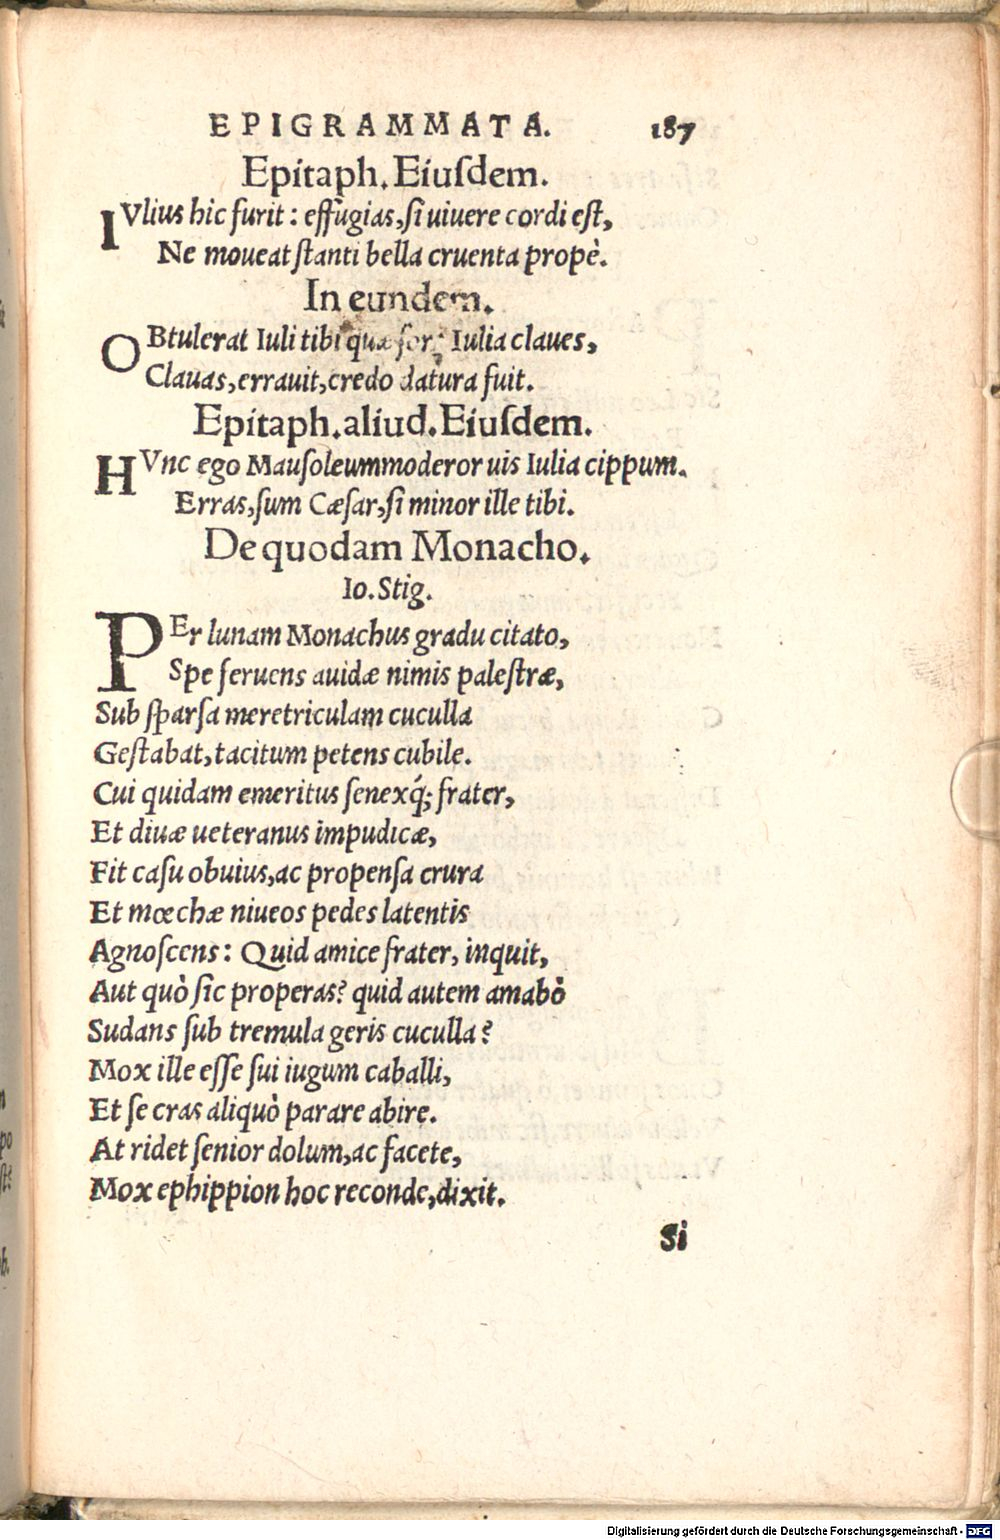 EPIGRAMMATA. 187
Epitaph. Eiuſdem.
IVlius hic furit: effugias, ſi uiuere cordi eſt,
Ne moueat ſtanti bella cruenta propè.
In eundem.
OBtulerat Iuli tibi quæ ſors Iulia claues,
Clauas, errauit, credo datura fuit.
Epitaph. aliud. Eiuſdem.
HVnc ego Mauſoleummoderor uis Iulia cippum.
Erras, ſum Cæſar, ſi minor ille tibi.
De quodam Monacho.
Io. Stig.
PEr lunam Monachus gradu citato,
Spe feruens auidæ nimis paleſtræ,
Sub ſparſa meretriculam cuculla
Geſtabat, tacitum petens cubile.
Cui quidam emeritus ſenexq́; frater,
Et diuæ ueteranus impudicæ,
Fit caſu obuius, ac propenſa crura
Et mœchæ niueos pedes latentis
Agnoſcens: Quid amice frater, inquit,
Aut quò ſic properas? quid autem amabò
Sudans ſub tremula geris cuculla?
Mox ille eſſe ſui iugum caballi,
Et ſe cras aliquò parare abire.
At ridet ſenior dolum, ac facete,
Mox ephippion hoc reconde, dixit.
Si
Digitalisierung gefördert durch die Deutsche Forschungsgemeinschaft - DFG